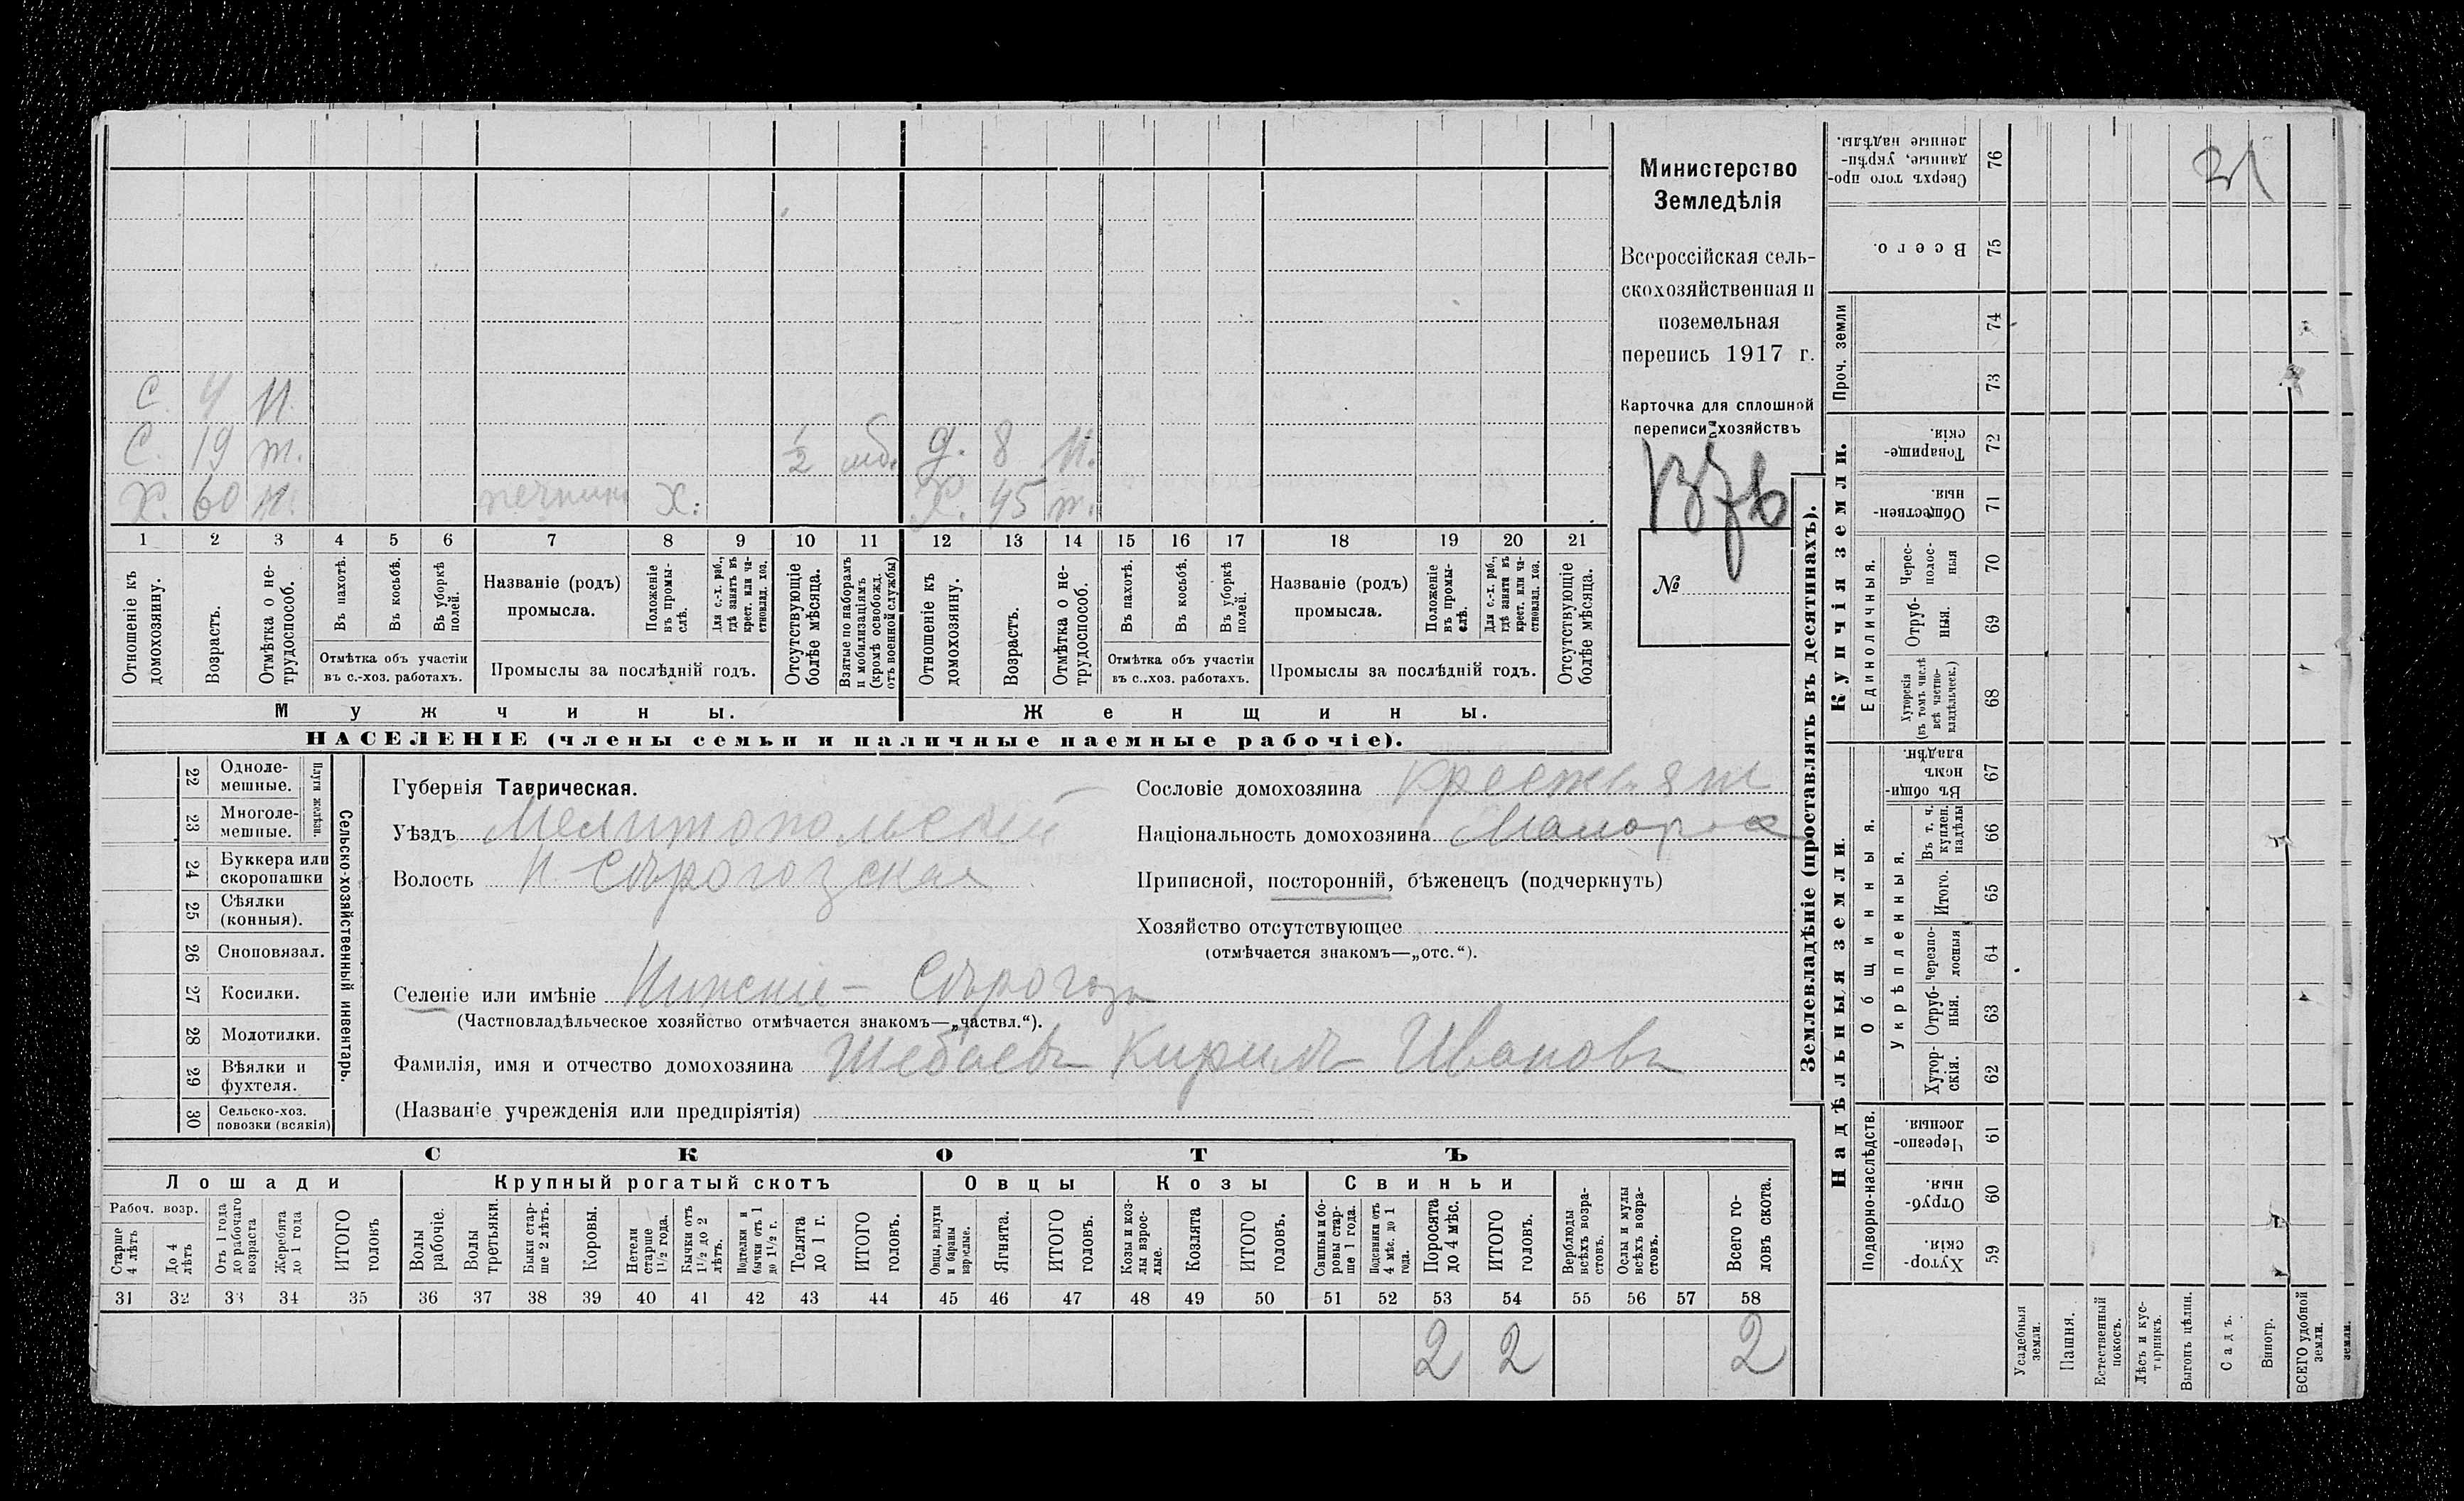 С. 4 н.
С. 19 т. 1/2 моб. д. 8 н.
Х. 60 н. печник Х. Х. 45 т.
1 2 3 4 5 6 7 8 9 10 11 12 13 14 15 16 17 18 19 20 21
Отношеніе къ домохозяину.
Возрастъ.
Отмѣтка о не-
трудоспособ.
Въ пахотѣ.
Въ косьбѣ.
Въ уборкѣ
полей.
Отмѣтка объ участіи
въ с.-хоз. работахъ.
Названіе (родъ)
промысла.
Положеніе
въ промы-
слѣ.
Для с.-х. раб.,
гдѣ занятъ въ
крест. или ча-
стновлад. хоз.
Промыслы за послѣдній годъ.
Отсутствующіе
болѣе мѣсяца.
Взятые по наборамъ
и мобилизаціямъ
(кромѣ освобожд.
отъ военной службы)
Отношеніе къ
домохозяину.
Возрастъ.
Отмѣтка о не-
трудоспособ.
Въ пахотѣ.
Въ косьбѣ.
Въ уборкѣ
полей.
Отмѣтка объ участіи
въ с.-хоз. работахъ.
Названіе (родъ)
промысла.
Положеніе
въ промы-
слѣ.
Для с.-х. раб.,
гдѣ занята въ
крест. или ча-
стновлад. хоз.
Промыслы за послѣдній годъ.
Отсутствующіе
болѣе мѣсяца.
Мужчины.
Женщины.
НАСЕЛЕНІЕ (члены семьи и наличные наемные рабочіе).
Министерство
Земледѣлія
Всероссійская сель-
скохозяйственная и
поземельная
перепись 1917 г.
Карточка для сплошной
переписи хозяйствъ
№
22 Одноле-
мешные.
23 Многоле-
мешные.
Плуги желѣзн.
24 Буккера или
скоропашки
25 Сѣялки
(конныя).
26 Сноповязал.
27 Косилки.
28 Молотилки.
29 Вѣялки и
фухтеля.
30 Сельско-хоз.
повозки (всякія)
Сельско-хозяйственный инвентарь.
Губернія Таврическая.
Уѣздъ Мелитопольскій
Волость Н. Сѣрогозская
Селеніе или имѣніе Нижніе - Сѣрогозы
(Частновладѣльческое хозяйство отмѣчается знакомъ—„частвл.“).
Фамилія, имя и отчество домохозяина Шебаевъ Кирилъ Ивановъ
(Названіе учрежденія или предпріятія)
Сословіе домохозяина крестьян
Національность домохозяина Малорос
Приписной, посторонній, бѣженецъ (подчеркнуть)
Хозяйство отсутствующее
(отмѣчается знакомъ—„отс.“).
СКОТЪ
Лошади
Крупный рогатый скотъ
Овцы
Козы
Свиньи
Рабоч. возр.
Старше
4 лѣтъ
До 4
лѣтъ
Отъ 1 года
до рабочаго
возраста
Жеребята
до 1 года
ИТОГО
головъ
Волы
рабочіе.
Волы
третьяки.
Быки стар-
ше 2 лѣтъ.
Коровы.
Нетели
старше
1½ года.
Бычки отъ
1½ до 2
лѣтъ.
Подтелки и
бычки отъ 1
до 1½ г.
Телята
до 1 г.
ИТОГО
головъ.
Овцы, валухи
и бараны
взрослые.
Ягнята.
ИТОГО
головъ.
Козы и коз-
лы взрос-
лые.
Козлята
ИТОГО
головъ.
Свиньи и бо-
ровы стар-
ше 1 года.
Подсвинки отъ
4 мѣс. до 1
года.
Поросята
до 4 мѣс.
ИТОГО
головъ.
Верблюды
всѣхъ возра-
стовъ.
Ослы и мулы
всѣхъ возра-
стовъ.
Всего го-
ловъ скота.
31 32 33 34 35 36 37 38 39 40 41 42 43 44 45 46 47 48 49 50 51 52 53 54 55 56 57 58
2 2 2
Землевладѣніе (проставлять въ десятинахъ).
Купчія земли.
Надѣльныя земли.
Сверхъ того про-
данные, укрѣп-
ленные надѣлы.
76
Всего.
75
Проч. земли
74
73
Товарище-
скія.
72
Обществен-
ныя.
71
Единоличныя.
Черес-
полос-
ныя
70
Отруб-
ныя.
69
Хуторскія
(въ томъ числѣ
всѣ частно-
владѣльческ.)
68
Общинныя.
Въ общин-
номъ
владѣн.
67
Укрѣпленныя.
Въ т. ч.
куплен.
надѣлы
66
Итого.
65
Черезпо-
лосныя
64
Отруб-
ныя.
63
Хутор-
скія.
62
Подворно-наслѣдств.
Черезпо-
лосныя.
61
Отруб-
ныя.
60
Хутор-
скія.
59
Усадебныя
земли.
Пашня.
Естественный
покосъ.
Лѣсъ и кус-
тарникъ.
Выгонъ цѣлин.
Садъ.
Виногр.
ВСЕГО удобной
земли.
земли.